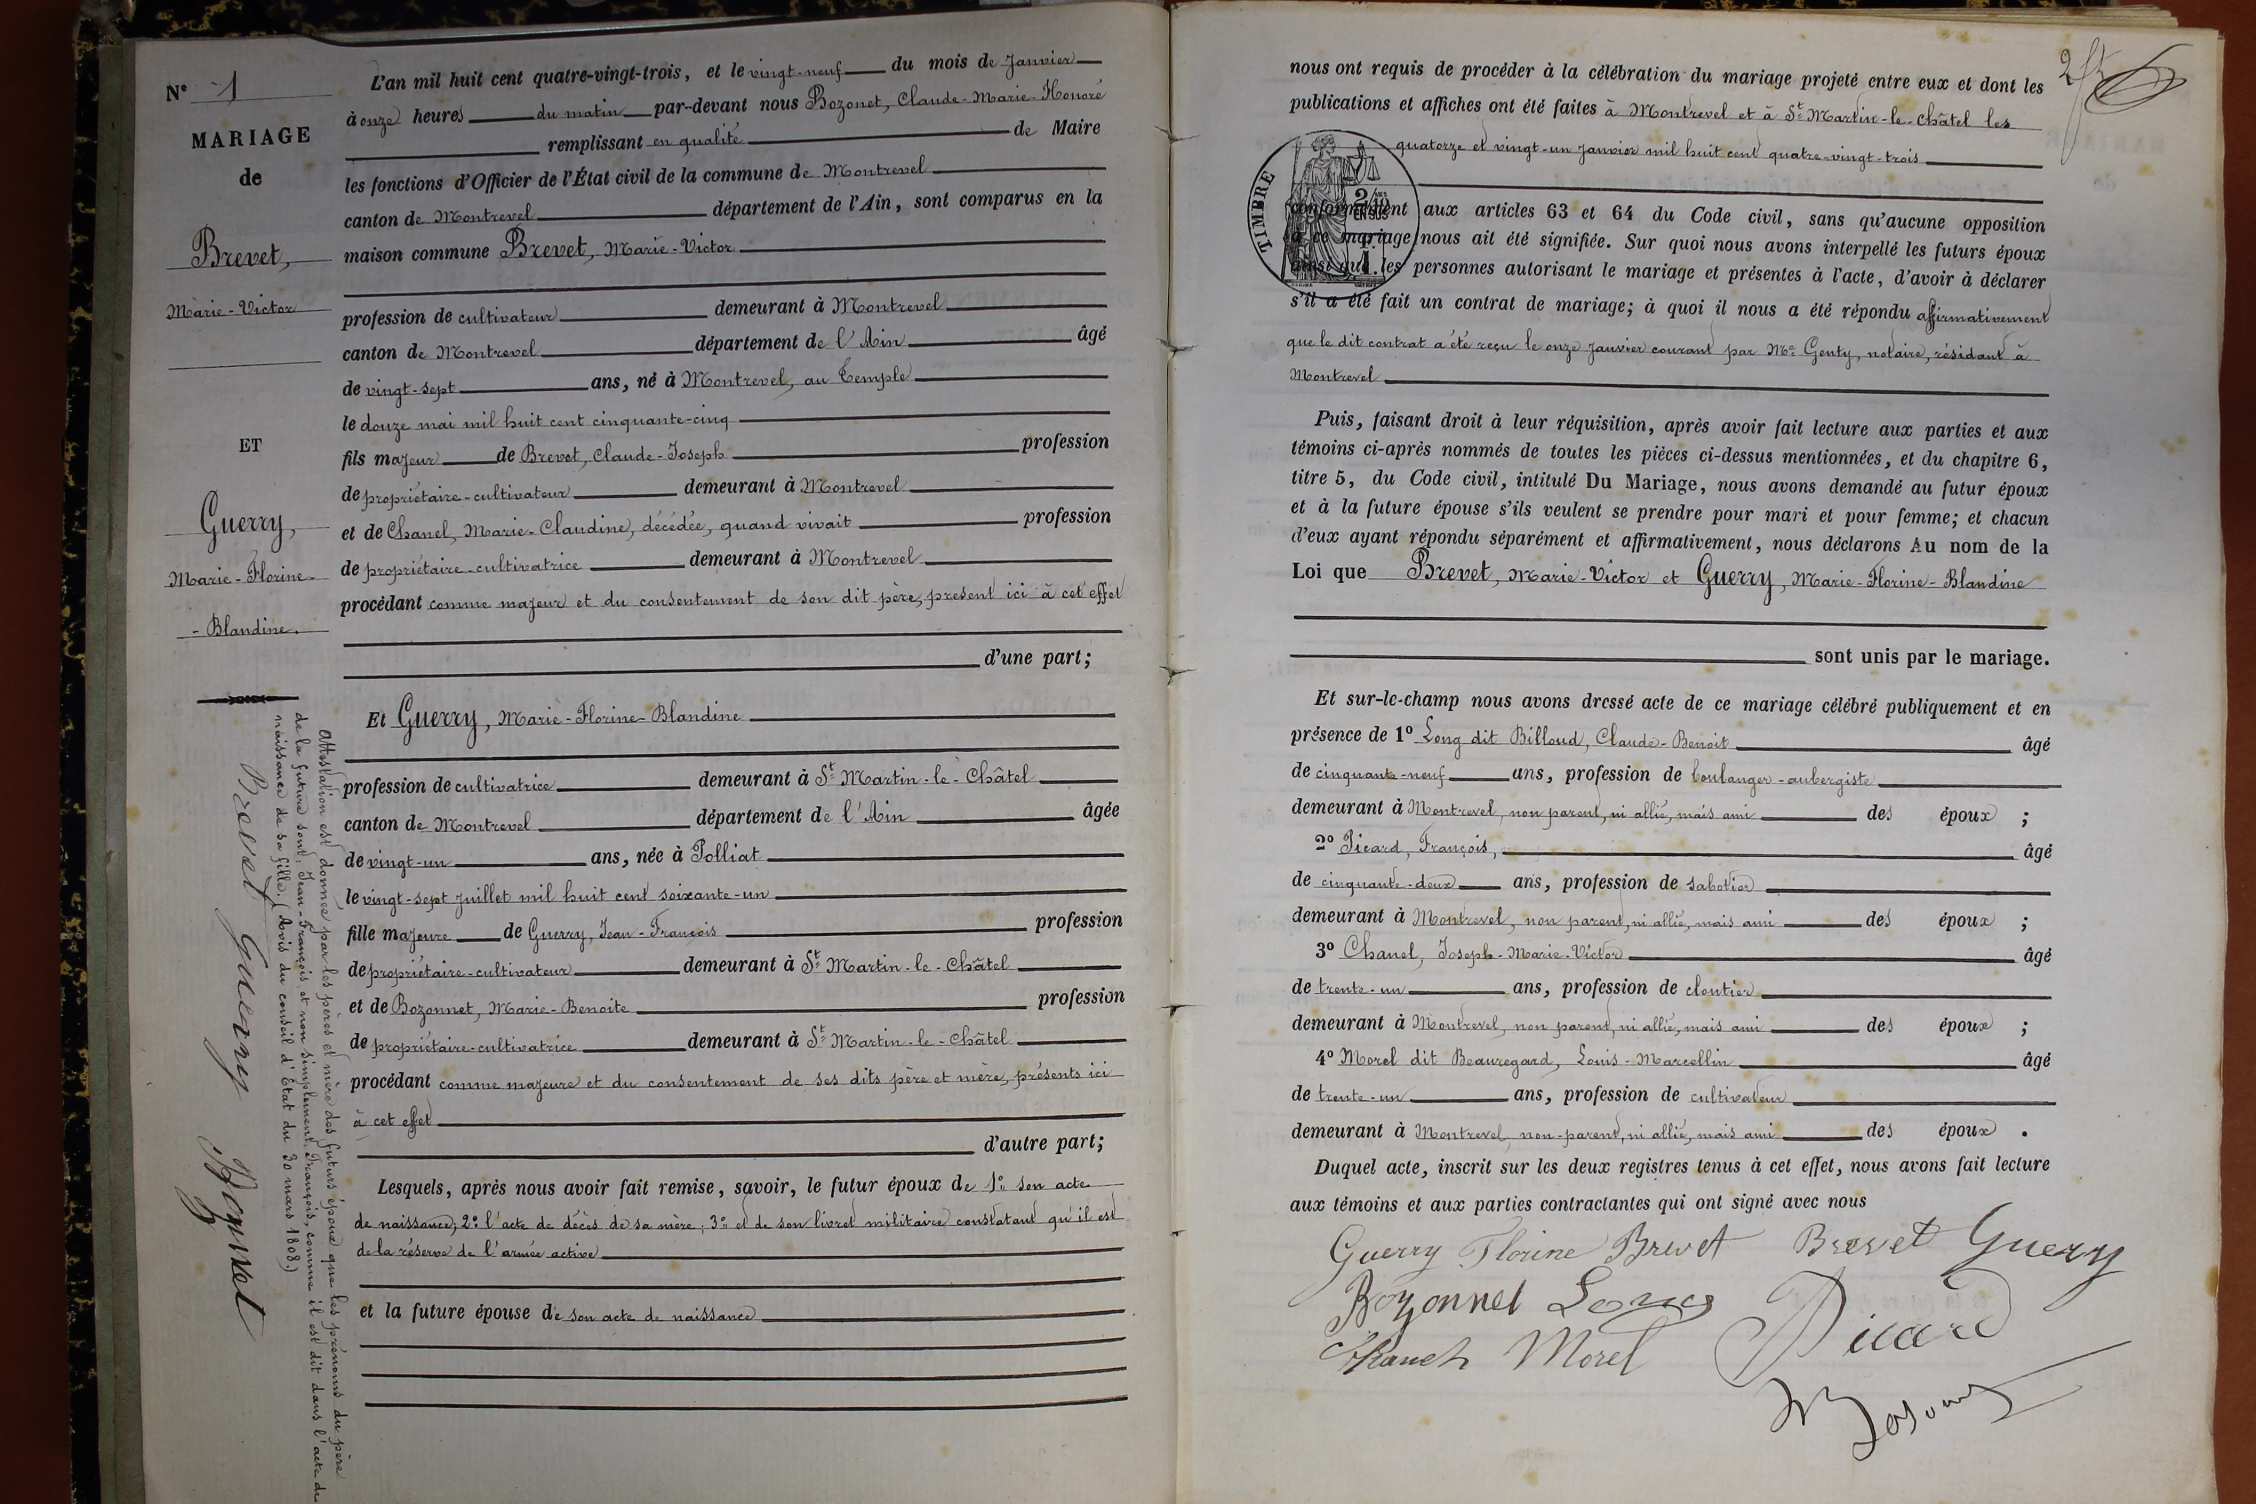 N° 1
MARIAGE
de
Brevet,
Marie-Victor
ET
Guerry,
Marie-Florine-
-Blandine.
L'an mil huit cent quatre-vingt-trois, et le vingt-neuf du mois de Janvier
à onze heures du matin par-devant nous Bozonet, Claude-Marie-Honoré
remplissant en qualité de Maire
les fonctions d'Officier de l'État civil de la commune de Montrevel
canton de Montrevel département de l'Ain, sont comparus en la
maison commune Brevet, Marie-Victor
profession de cultivateur demeurant à Montrevel
canton de Montrevel département de l'Ain âgé
de vingt-sept ans, né à Montrevel, au Temple
le douze mai mil huit cent cinquante-cinq
fils majeur de Brevet, Claude-Joseph profession
de propriétaire-cultivateur demeurant à Montrevel
et de Chanel, Marie-Claudine, décédée, quand vivait profession
de propriétaire-cultivatrice demeurant à Montrevel
procédant comme majeur et du consentement de son dit père, présent ici à cet effet
d'une part;
Et Guerry, Marie-Florine-Blandine
profession de cultivatrice demeurant à St Martin-le-Châtel
canton de Montrevel département de l'Ain âgée
de vingt-un ans, née à Polliat
le vingt-sept juillet mil huit cent soixante-un
fille majeure de Guerry, Jean-François profession
de propriétaire-cultivateur demeurant à St Martin-le-Châtel
et de Bozonnet, Marie-Benoite profession
de propriétaire-cultivatrice demeurant à St Martin-le-Châtel
procédant comme majeure et du consentement de ses dits père et mère, présents ici
à cet effet
d'autre part;
Lesquels, après nous avoir fait remise, savoir, le futur époux de 1° son acte
de naissance; 2° l'acte de décès de sa mère; 3° et de son livret militaire constatant qu'il est
de la réserve de l'armée active
et la future épouse de son acte de naissance
Attestation est donnée par les pères et mère des futurs époux que les prénoms du père
de la future sont: Jean-François et non simplement François, comme il est dit dans l'acte de
naissance de sa fille. (Avis du conseil d'État du 30 mars 1808.)
Brevet Guerry Bozonnet
nous ont requis de procéder à la célébration du mariage projeté entre eux et dont les
publications et affiches ont été faites à Montrevel et à St Martin-le-Châtel les
quatorze et vingt-un Janvier mil huit cent quatre-vingt-trois
TIMBRE
2/10 EN SUS
conformément aux articles 63 et 64 du Code civil, sans qu'aucune opposition
à ce mariage nous ait été signifiée. Sur quoi nous avons interpellé les futurs époux
ainsi que les personnes autorisant le mariage et présentes à l'acte, d'avoir à déclarer
s'il a été fait un contrat de mariage; à quoi il nous a été répondu affirmativement
que le dit contrat a été reçu le onze Janvier courant par Me Genty, notaire, résidant à
Montrevel
Puis, faisant droit à leur réquisition, après avoir fait lecture aux parties et aux
témoins ci-après nommés de toutes les pièces ci-dessus mentionnées, et du chapitre 6,
titre 5, du Code civil, intitulé Du Mariage, nous avons demandé au futur époux
et à la future épouse s'ils veulent se prendre pour mari et pour femme; et chacun
d'eux ayant répondu séparément et affirmativement, nous déclarons Au nom de la
Loi que Brevet, Marie-Victor et Guerry, Marie-Florine-Blandine
sont unis par le mariage.
Et sur-le-champ nous avons dressé acte de ce mariage célébré publiquement et en
présence de 1° Long dit Billoud, Claude-Benoit âgé
de cinquante-neuf ans, profession de boulanger-aubergiste
demeurant à Montrevel, non parent, ni allié, mais ami des époux ;
2° Picard, François, âgé
de cinquante-deux ans, profession de sabotier
demeurant à Montrevel, non parent, ni allié, mais ami des époux ;
3° Chanel, Joseph-Marie-Victor âgé
de trente-un ans, profession de cloutier
demeurant à Montrevel, non parent, ni allié, mais ami des époux ;
4° Morel dit Beauregard, Louis-Marcellin âgé
de trente-un ans, profession de cultivateur
demeurant à Montrevel, non-parent, ni allié, mais ami des époux .
Duquel acte, inscrit sur les deux registres tenus à cet effet, nous avons fait lecture
aux témoins et aux parties contractantes qui ont signé avec nous
Guerry Florine Brevet Brevet Guerry
Bozonnet Long Picard
Morel